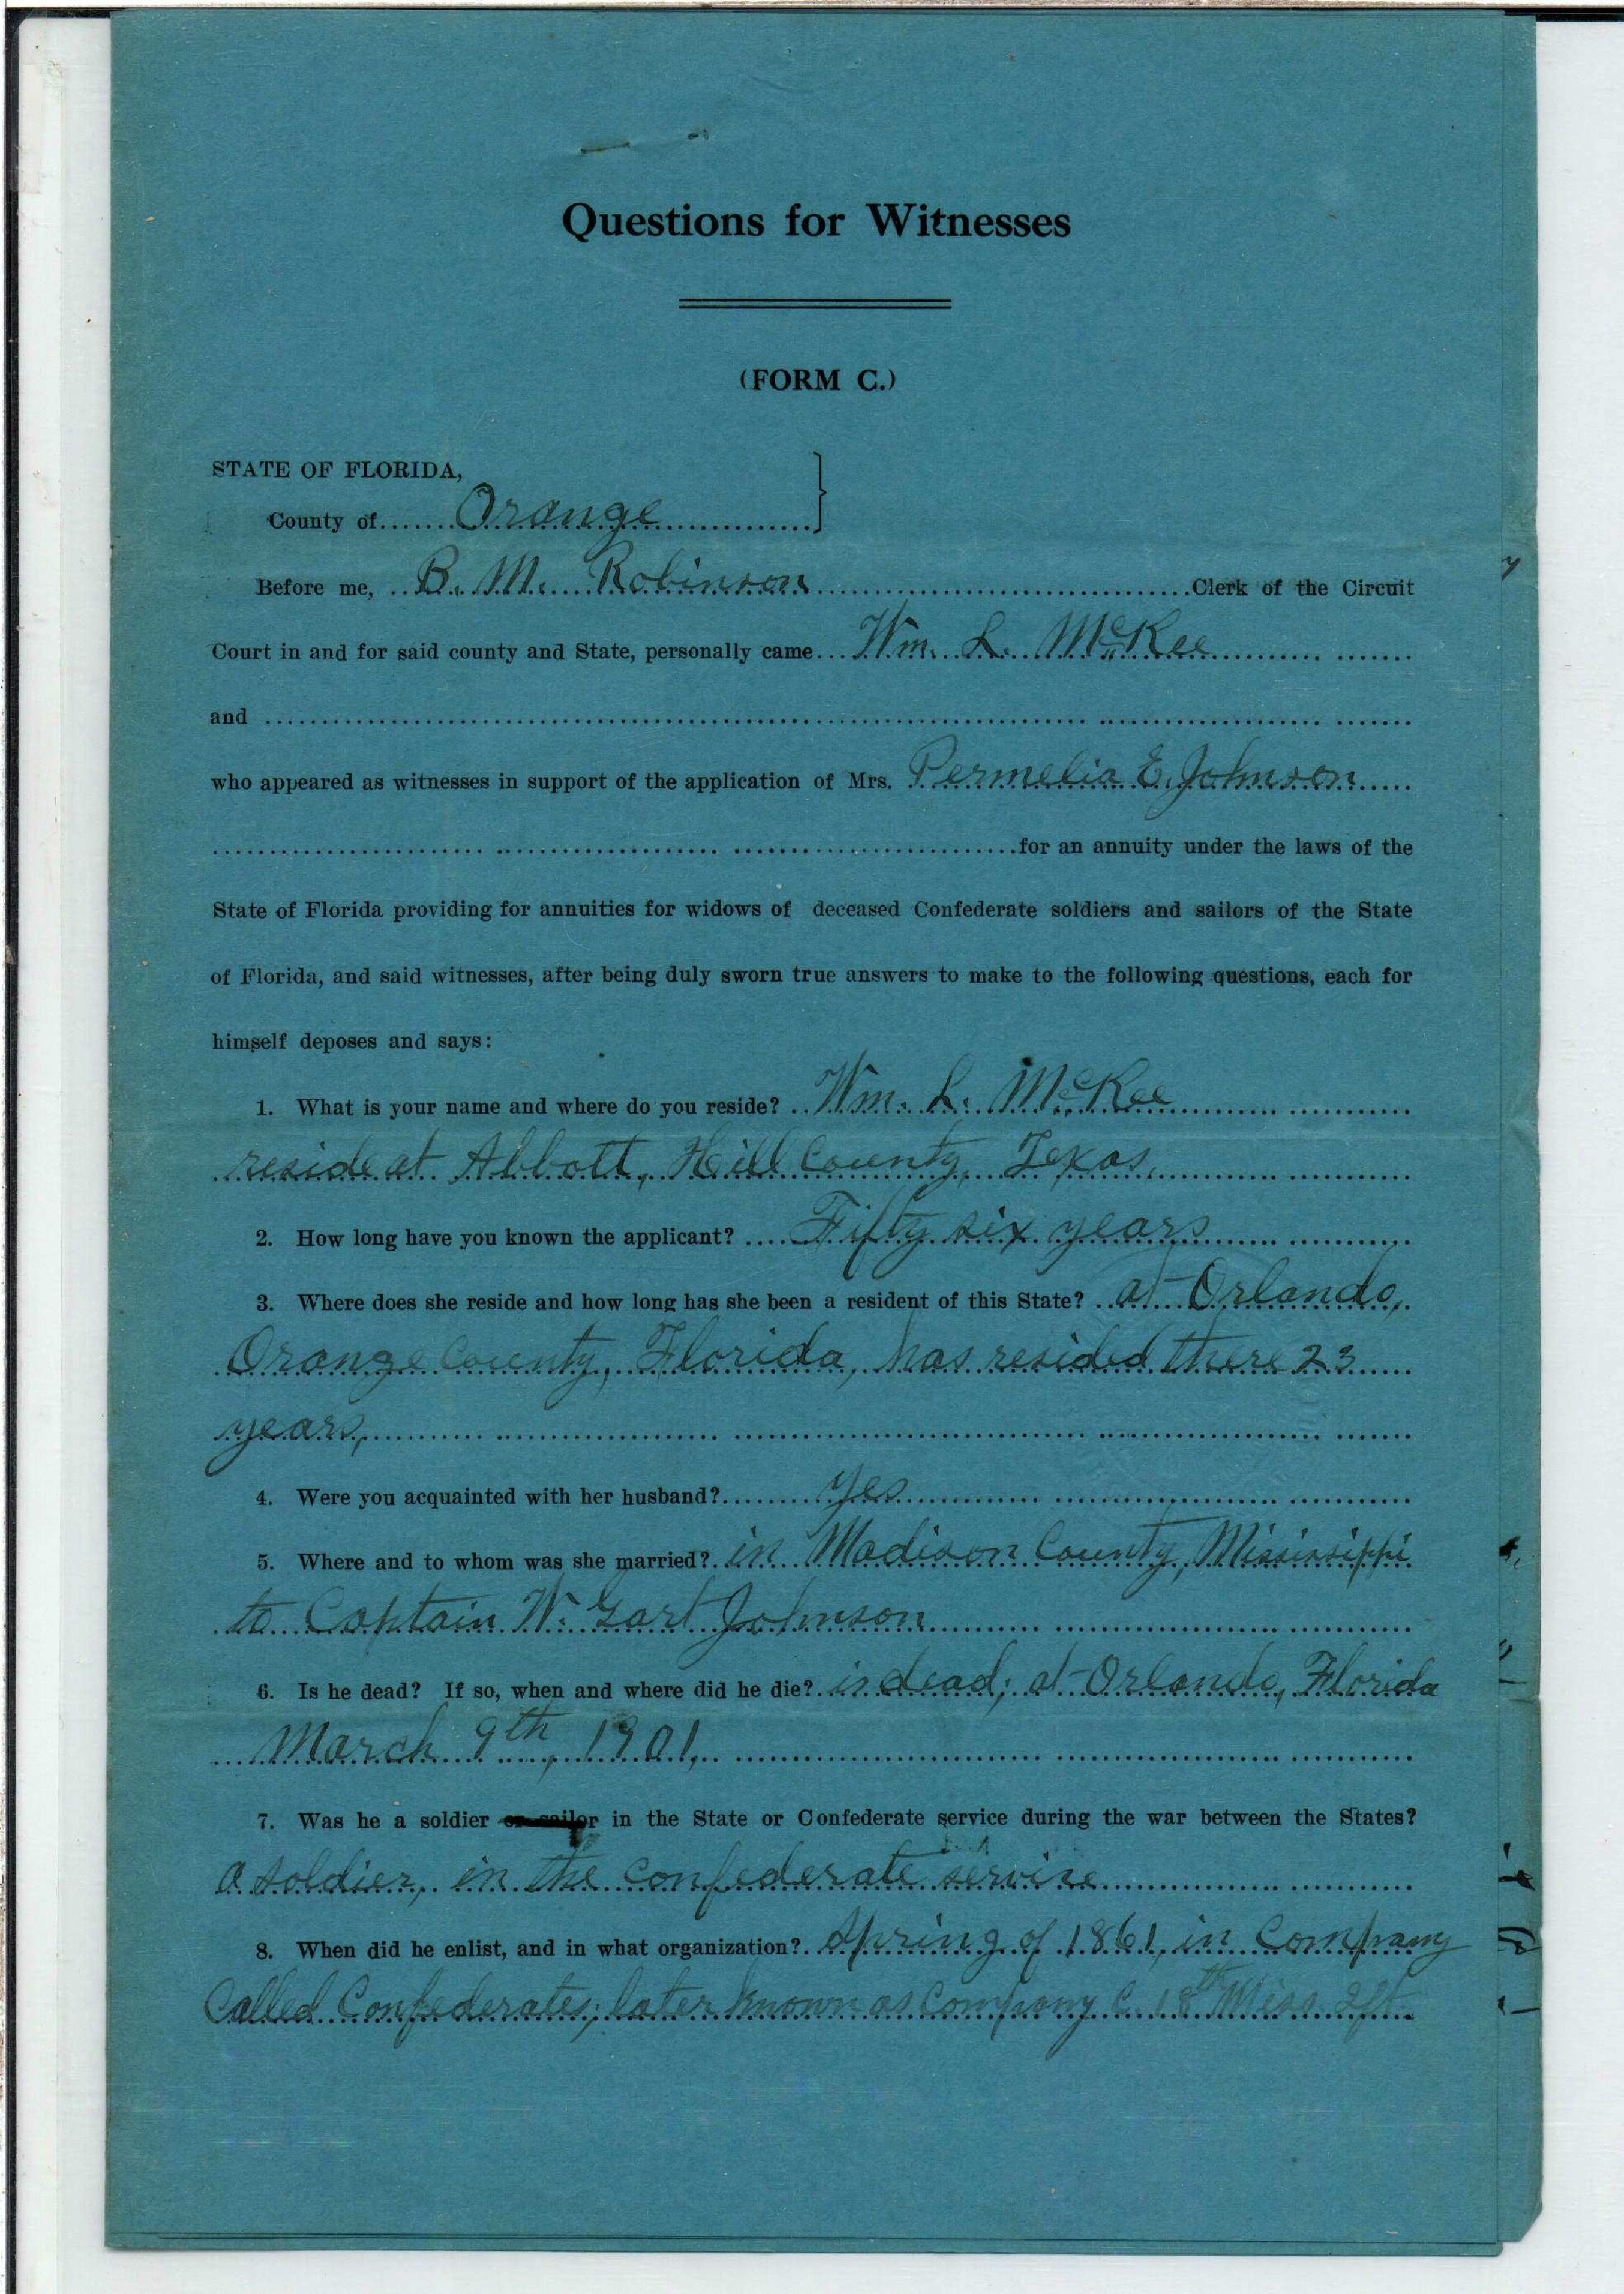 Questions for Witnesses
(FORM C.)
STATE OF FLORIDA,
County of Orange
Before me, B. M. Robinson Clerk of the Circuit
Court in and for said county and State, personally came Wm. L. McKee
and
who appeared as witnesses in support of the application of Mrs. Permelia E. Johnson
for an annuity under the laws of the
State of Florida providing for annuities for widows of deceased Confederate soldiers and sailors of the State
of Florida, and said witnesses, after being duly sworn true answers to make to the following questions, each for
himself deposes and says:
1. What is your name and where do you reside? Wm. L. McKee
reside at Abbott, Hill County, Texas.
2. How long have you known the applicant? Fifty six years
3. Where does she reside and how long has she been a resident of this State? at Orlando,
Orange County, Florida, has resided there 23
years,
4. Were you acquainted with her husband? Yes
5. Where and to whom was she married? in Madison County, Mississippi
to Captain W. Gart Johnson
6. Is he dead? If so, when and where did he die? is dead; at Orlando, Florida
March 9th, 1901,
7. Was he a soldier or sailor in the State or Confederate service during the war between the States?
a soldier, in the Confederate service
8. When did he enlist, and in what organization? Spring of 1861, in Company
Called Confederates; later known as Company C. 18th Miss.